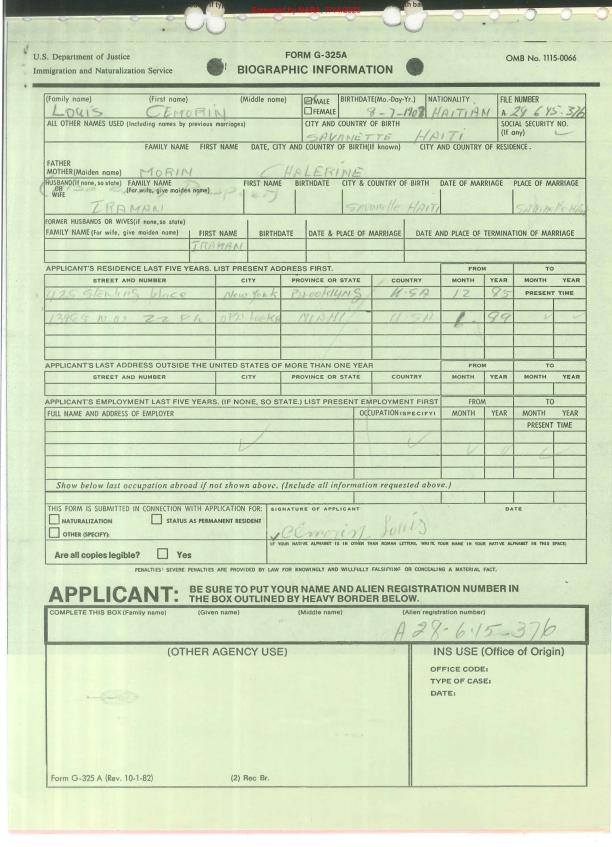 U.S. Department of Justice
Immigration and Naturalization Service
FORM G-325A
BIOGRAPHIC INFORMATION
OMB No. 1115-0066
(Family name) (First name) (Middle name) MALE FEMALE BIRTHDATE(Mo.-Day-Yr.) NATIONALITY FILE NUMBER
LOUIS CEMORIN HAITIAN A 28 645-376
ALL OTHER NAMES USED (Including names by previous marriages) CITY AND COUNTRY OF BIRTH SOCIAL SECURITY NO. (If any)
SAVANETTE HAITI
FAMILY NAME FIRST NAME DATE, CITY AND COUNTRY OF BIRTH(If known) CITY AND COUNTRY OF RESIDENCE.
FATHER
MOTHER(Maiden name) MORIN CHALERINE
HUSBAND(If none, so state) OR WIFE FAMILY NAME (For wife, give maiden name) FIRST NAME BIRTHDATE CITY & COUNTRY OF BIRTH DATE OF MARRIAGE PLACE OF MARRIAGE
IRAMAN HAITI
FORMER HUSBANDS OR WIVES(if none,so state)
FAMILY NAME (For wife, give maiden name) FIRST NAME BIRTHDATE DATE & PLACE OF MARRIAGE DATE AND PLACE OF TERMINATION OF MARRIAGE
IRAMAN
APPLICANT'S RESIDENCE LAST FIVE YEARS. LIST PRESENT ADDRESS FIRST. FROM TO
STREET AND NUMBER CITY PROVINCE OR STATE COUNTRY MONTH YEAR MONTH YEAR
New York Brooklyn U.SA 12 95 PRESENT TIME
MIAMI U.SA
APPLICANT'S LAST ADDRESS OUTSIDE THE UNITED STATES OF MORE THAN ONE YEAR FROM TO
STREET AND NUMBER CITY PROVINCE OR STATE COUNTRY MONTH YEAR MONTH YEAR
APPLICANT'S EMPLOYMENT LAST FIVE YEARS. (IF NONE, SO STATE.) LIST PRESENT EMPLOYMENT FIRST FROM TO
FULL NAME AND ADDRESS OF EMPLOYER OCCUPATION(SPECIFY) MONTH YEAR MONTH YEAR
PRESENT TIME
Show below last occupation abroad if not shown above. (Include all information requested above.)
THIS FORM IS SUBMITTED IN CONNECTION WITH APPLICATION FOR: SIGNATURE OF APPLICANT DATE
NATURALIZATION STATUS AS PERMANENT RESIDENT
OTHER (SPECIFY): Cemorin Louis
IF YOUR NATIVE ALPHABET IS IN OTHER THAN ROMAN LETTERS, WRITE YOUR NAME IN YOUR NATIVE ALPHABET IN THIS SPACE:
Are all copies legible? Yes
PENALTIES: SEVERE PENALTIES ARE PROVIDED BY LAW FOR KNOWINGLY AND WILLFULLY FALSIFYING OR CONCEALING A MATERIAL FACT.
APPLICANT: BE SURE TO PUT YOUR NAME AND ALIEN REGISTRATION NUMBER IN
THE BOX OUTLINED BY HEAVY BORDER BELOW.
COMPLETE THIS BOX (Family name) (Given name) (Middle name) (Alien registration number)
A 28-645-376
(OTHER AGENCY USE) INS USE (Office of Origin)
OFFICE CODE:
TYPE OF CASE:
DATE:
Form G-325 A (Rev. 10-1-82) (2) Rec Br.